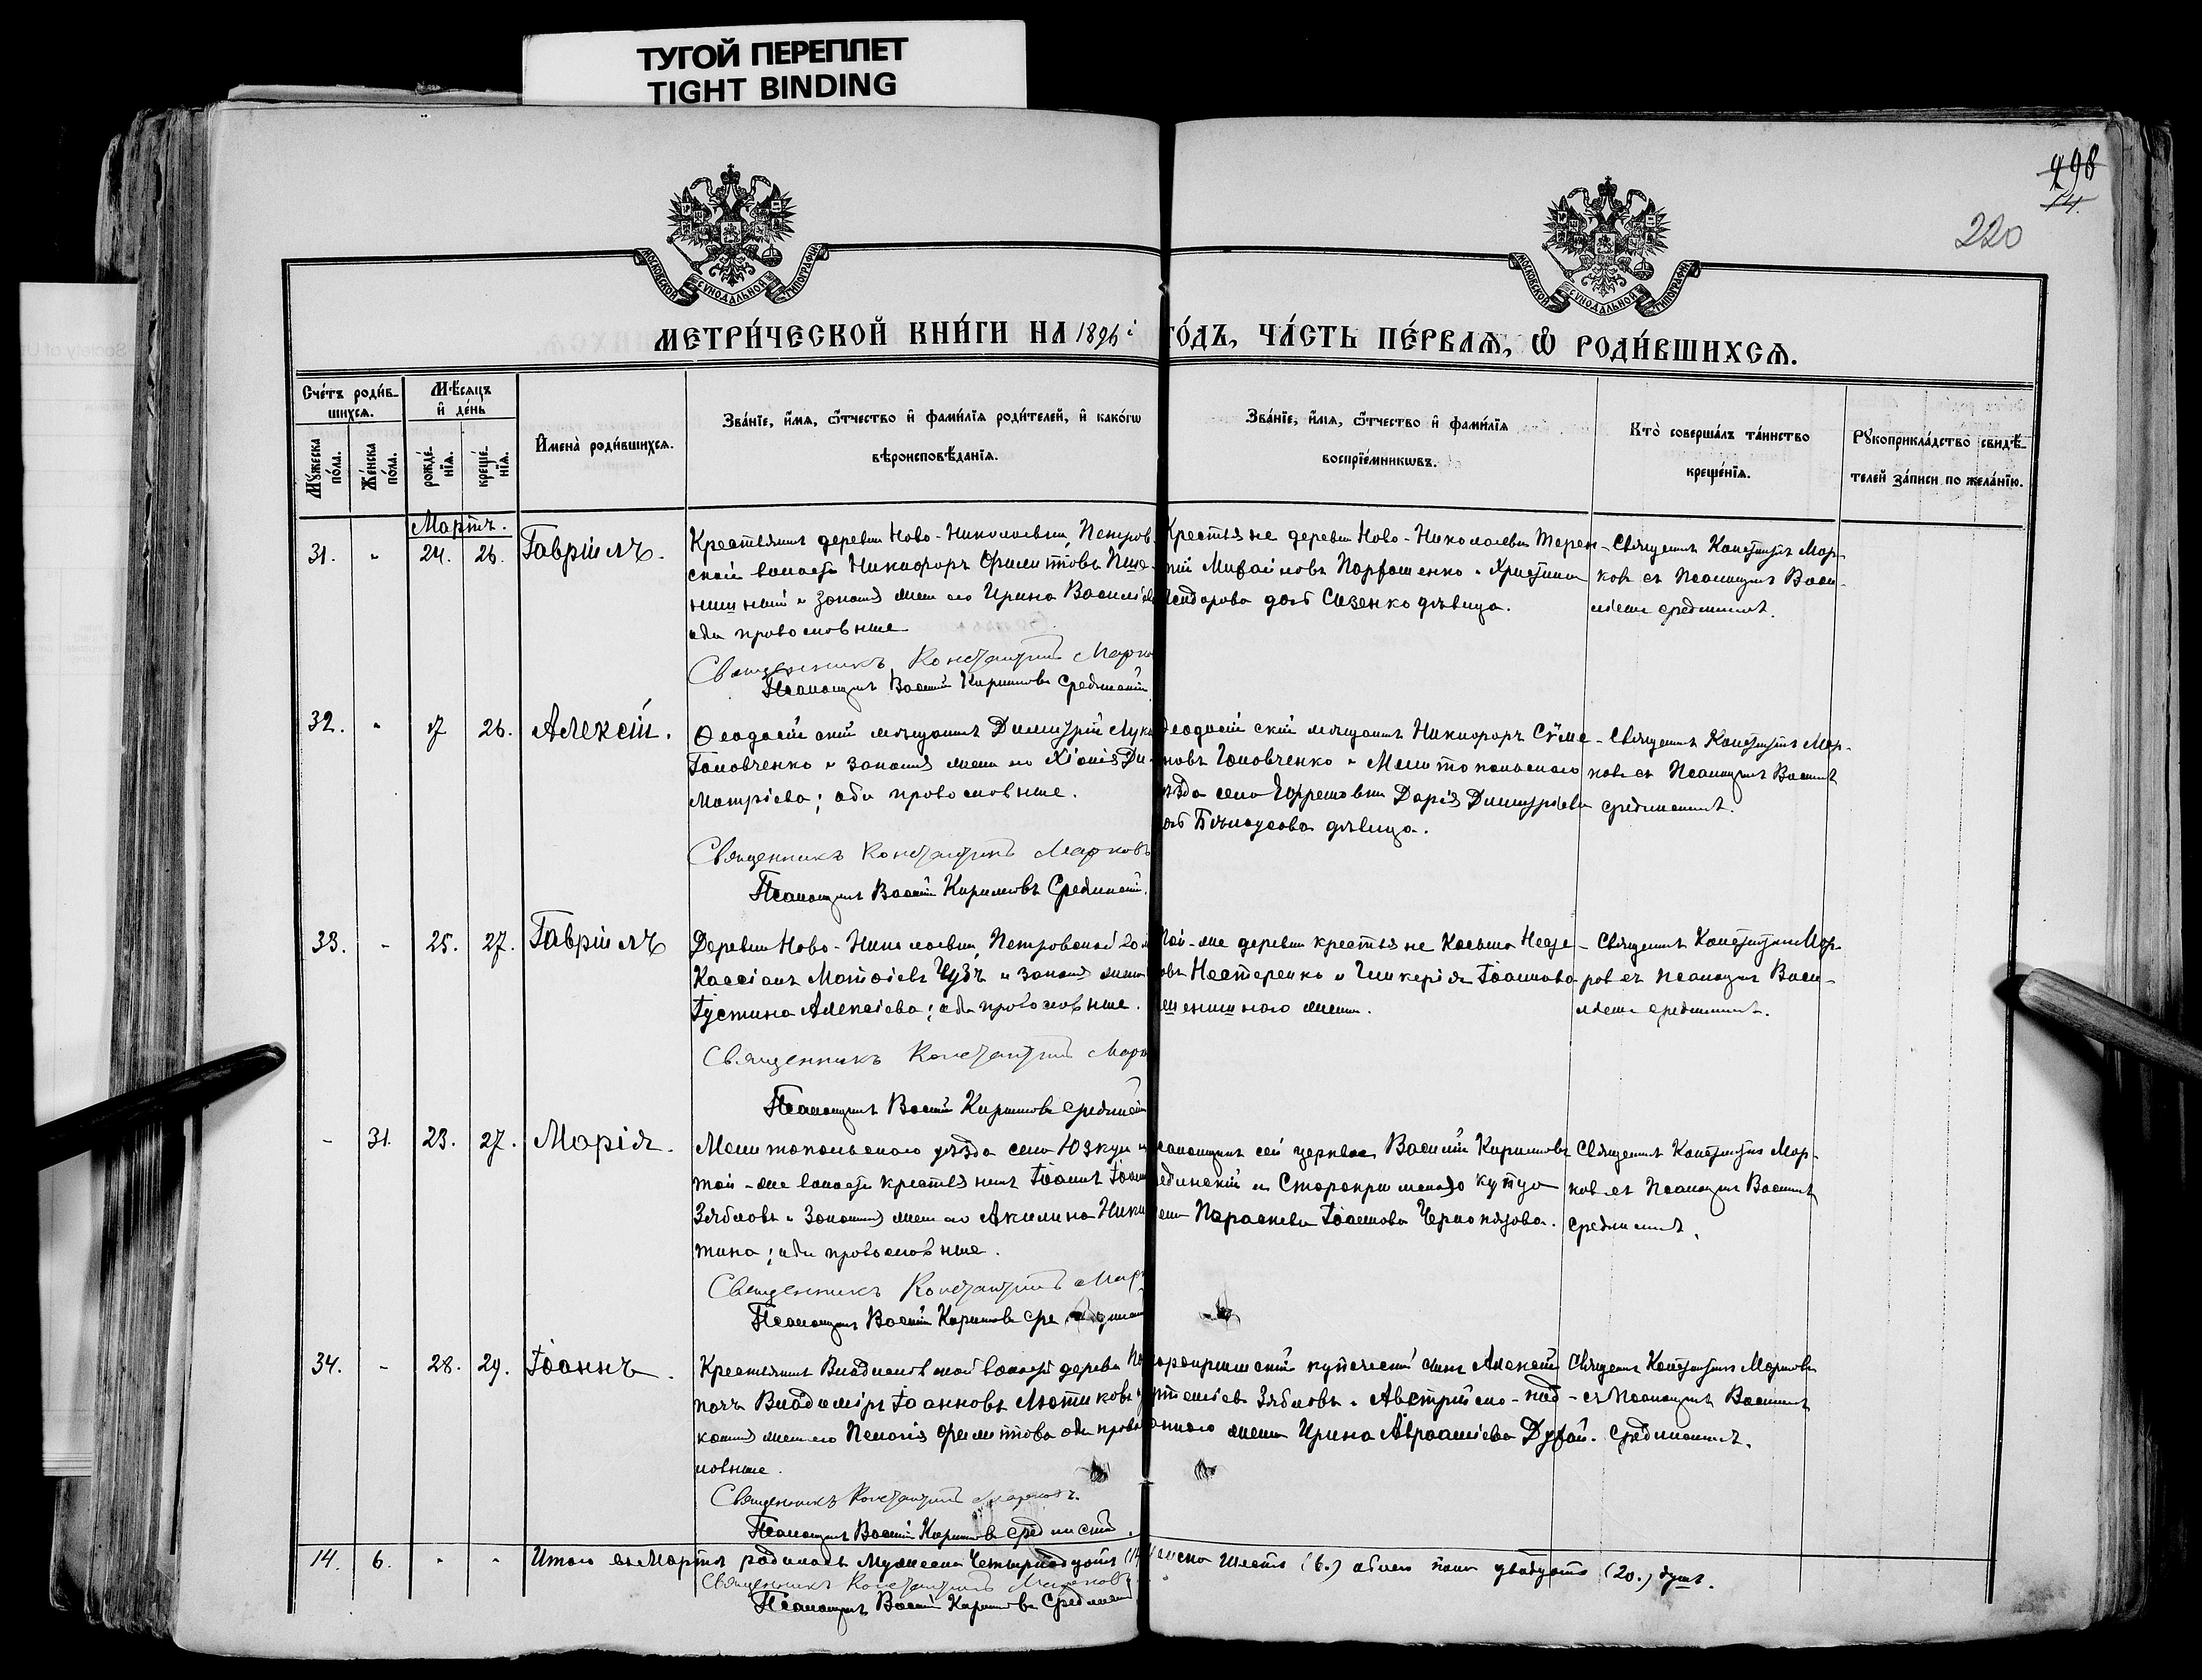 ТУГОЙ ПЕРЕПЛЕТ
TIGHT BINDING
498
14.
220
МОСКОВСКОЙ СѴНОДАЛЬНОЙ ТИПОГРАФІИ
МОСКОВСКОЙ СѴНОДАЛЬНОЙ ТИПОГРАФІИ
МЕТРИ́ЧЕСКОЙ КНИ́ГИ НА 1896 й ГО́ДЪ, ЧА́СТЬ ПЕ́РВАЯ, Ѡ РОДИ́ВШИХСЯ.
Сче́тъ роди́в-
шихся.
Мѣ́сяцъ
и де́нь
Мꙋ́жеска по́ла.
Же́нска по́ла.
рожде́нїя.
креще́нїя.
Имена̀ роди́вшихся.
Зва́нїе, и́мя, ѻ́тчество и фами́лїя роди́телей, и како́гѡ
вѣроисповѣ́данїя.
Зва́нїе, и́мя, ѻ́тчество и фами́лїя
воспрїе́мникѡвъ.
Кто̀ соверша́лъ та́инство
креще́нїя.
Рꙋкоприкла́дство свидѣ́-
телей за́писи по жела́нїю.
Мартъ.
31. - 24. 26. Гавріилъ.
Крестьянинъ деревни Ново-Николаевки, Петров-
ской волости Никифоръ Филитовъ
и законная жена его Ирина Василіева
оба православные
Священникъ Константинъ Марковъ
Псаломщикъ Василій Кириловъ Срединскій
Крестьяне деревни Ново-Николаевки Терен-
тій Пархоменко и Христина
дочь Сизенко дѣвица.
Священникъ Константинъ Мар-
ковъ съ Псаломщикомъ Васи-
ліемъ Срединскимъ.
32. - 17 26. Алексій.
Ѳеодосійскій мѣщанинъ Димитрій Лукинъ
Головченко и законная жена его Хіонія Ди-
митріева; оба православные.
Священникъ Константинъ Марковъ
Псаломщикъ Василій Кириловъ Срединскій.
Ѳеодосійскій мѣщанинъ Никифоръ Сѵме-
новъ Головченко и Мелитопольскаго
уѣзда села Ефремовки Дарія Димитріева
дочь Бѣлоусова дѣвица.
Священникъ Константинъ Мар-
ковъ съ Псаломщикомъ Василіемъ
Срединскимъ.
33. - 25. 27. Гавріилъ
Деревни Ново-Николаевки, Петровской вол.
Кассіанъ Матѳіевъ Чубъ и законная жена
Іустина Алексіева; оба православные.
Священникъ Константинъ Марковъ
Псаломщикъ Василій Кириловъ Срединскій
Той-же деревни крестьяне Косьма
Нестеренко и Гликерія Іоаннова
жена.
Священникъ Константинъ Мар-
ковъ съ Псаломщикомъ Васи-
ліемъ Срединскимъ.
- 31. 23. 27. Марія.
Мелитопольскаго уѣзда села Юзкуи и
той-же волости крестьянинъ Іоаннъ
Зябловъ и законная жена его Акилина Ники-
тина; оба православные.
Священникъ Константинъ Марковъ
Псаломщикъ Василій Кириловъ Срединскій
Псаломщикъ сей церкви Василій Кириловъ
Срединскій и Старокрымскаго купца
жена Параскева Іоаннова Чернокозова.
Священникъ Константинъ Мар-
ковъ съ Псаломщикомъ Василіемъ
Срединскимъ.
34. - 28. 29. Іоаннъ.
Крестьянинъ Владиславской волости деревни
Владиміръ Іоанновъ Лютиковъ и за-
конная жена его Пелагія Филитова оба право-
славные.
Священникъ Константинъ Марковъ.
Псаломщикъ Василій Кириловъ Срединскій.
Старокрымскій купеческій сынъ Алексій
Зябловъ и Австрійско-под-
даннаго жена Ирина Аврааміева
Священникъ Константинъ Марковъ
съ Псаломщикомъ Василіемъ
Срединскимъ.
14. 6. - - Итого въ Мартѣ родилось Мужеска Четырнадцать (14) женска Шесть (6.) обоего пола двадцать (20.) душъ.
Священникъ Константинъ Марковъ
Псаломщикъ Василій Кириловъ Срединскій